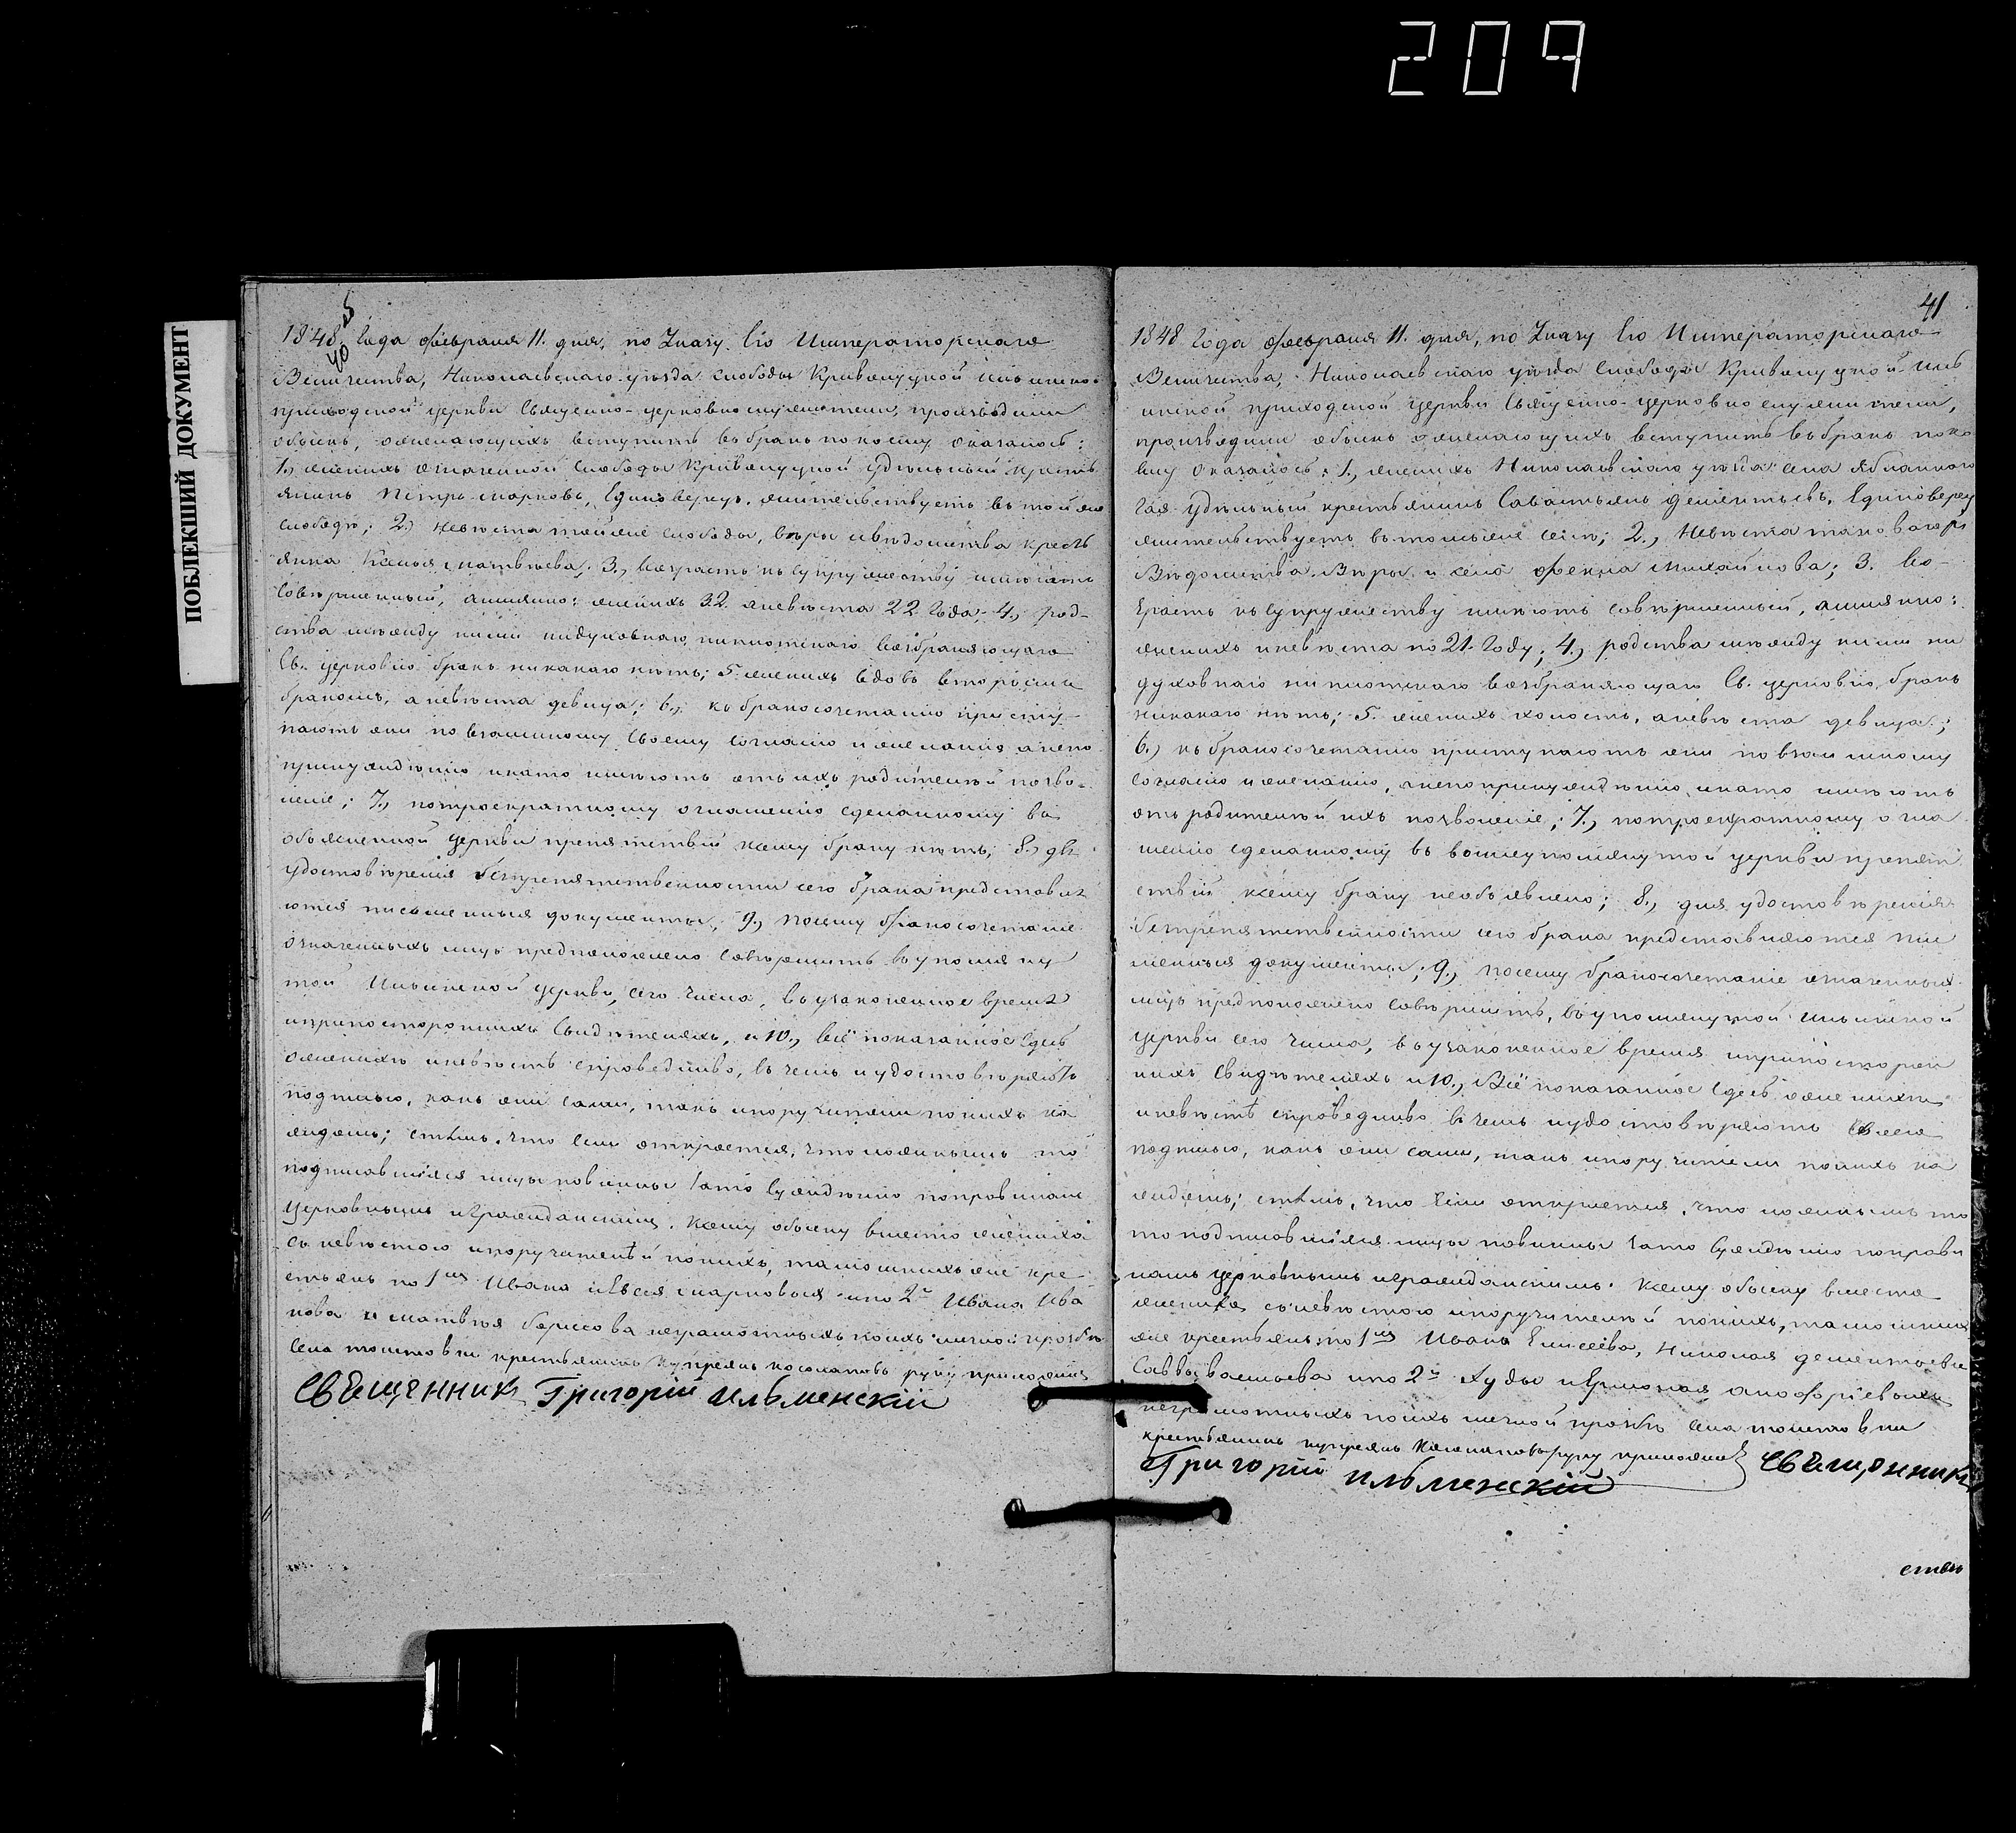 209
ПОБЛЕКШИЙ ДОКУМЕНТ
40
1848 Года февраля 11. дня, по Указу Его Императорскаго
Величества, Николаевскаго уѣзда слободы Криволуцкой Ильинско
приходской церкви Священно-церковнослужители, производили
обыскъ, о желающихъ вступить въ бракъ по коему оказалось:
1., женихъ означенной слободы Криволуцкой удѣльный кресть
янинъ Петръ Марковъ, Единоверецъ, жительствуетъ въ той же
слободѣ; 2.) невѣста той же слободы, вѣры и вѣдомства кресть
янка Матвѣева; 3., возрастъ къ супружеству имѣютъ
совершенный, а имянно: женихъ 32. а невѣста 22 Года; 4., род-
ства между ними ни духовнаго, ни плотскаго возбраняющаго
Св. церковію бракъ никакаго нѣтъ; 5. женихъ вдовъ вторымъ
бракомъ, а невѣста девица; 6., къ бракосочетанію присту-
паютъ они по взаимному своему согласію и желанію а непо
принужденію и на то имѣютъ отъ ихъ родителей позво-
леніе; 7., по троекратному оглашенію сделанному въ
объясненной церкви препятствій к сему браку нѣтъ; 8., дл
удостовѣренія безпрепятственности сего брака представля
ются писменныя документы; 9., посему бракосочетаніе
означенныхъ лицъ предположено совершить въ упомяну
той Ильинской церкви, сего числа, въ узаконенное время
и при постороннихъ свидѣтеляхъ, и 10., всё показанное здесь
о женихѣ и невѣстѣ справедливо, въ чемъ и удостовѣряютъ
подписью, какъ они сами, такъ и поручители по нихъ ка
ждомъ; стѣмъ, что если откроется, что ложнымъ то
подписавшіяся лицы повинны за то сужденію по правиламъ
церковнымъ и Гражданскимъ. К сему обыску вместо жениха
съ невѣстою и поручителей по нихъ, тамошнихъ же кре
стьянъ по 1мъ Ивана и Марковыхъ и по 2й Ивана Ива
нова и Матвѣя Борисова неграмотныхъ по ихъ личной прозьбѣ
села Толстовки крестьянинъ Купреянъ Колопатовъ руку приложилъ
Священник Григорій Ильменскій
41
1848 Года февраля 11. дня, по Указу Его Императорскаго
Величества, Николаевскаго уѣзда Слободы Криволуцкой Иль
инской приходской церкви Священно-церковнослужители,
производили обыскъ о желающихъ вступить въ бракъ по ко
ему оказалось: 1., женихъ Николаевскаго уѣзда села Яблоннаго
Гая удѣльный крестьянинъ Савастьянъ Дементьевъ, Единоверец
жительствуетъ въ томъ же селѣ; 2., Невѣста таковагожъ
Вѣдомства Вѣры и села Фекла Михайлова; 3. Во-
зрастъ къ супружеству имѣютъ совершенный, а имянно:
женихъ и невѣста по 21. Году; 4., родства между ними ни
духовнаго ни плотскаго возбраняющаго Св. церковію бракъ
никакаго нѣтъ; 5. женихъ холостъ, а невѣста девица;
6.) къ бракосочетанію приступаютъ они по взаимному
согласію и желанію, а не по принужденію, и на то имѣютъ
отъ родителей ихъ позволеніе; 7., по троекратному огла
шенію сделанному въ вышеупомянутой церкви препят
ствій к сему браку необъявлено; 8., для удостовѣренія
безпрепятственности сего брака представляются пис
менныя документы; 9., посему бракосочетаніе означенных
лицъ предположено совершить, въ упомянутой Ильинской
церкви сего числа, въ узаконенное время и при посторон
нихъ Свидѣтеляхъ и 10., Всё показанное здесь о женихѣ
и невѣстѣ справедливо въ чемъ и удостовѣряютъ своею
подписью, какъ они сами, такъ и поручители по нихъ ка
ждомъ; стѣмъ, что если откроется, что ложнымъ то
то подписавшіяся лицы повинны за то сужденію по прави
ламъ церковнымъ и гражданскимъ. К сему обыску вместо
жениха съ невѣстою и поручителей по нихъ, тамошних
же крестьянъ по 1мъ Ивана Елисеева, Николая Дементьева
Саввы Васильева и по 2й Худы и Ермолая
неграмотныхъ по ихъ личной прозьбѣ села Толстовки
крестьянинъ Купреянъ Колопатовъ руку приложилъ Священник
Григорій Ильменскій